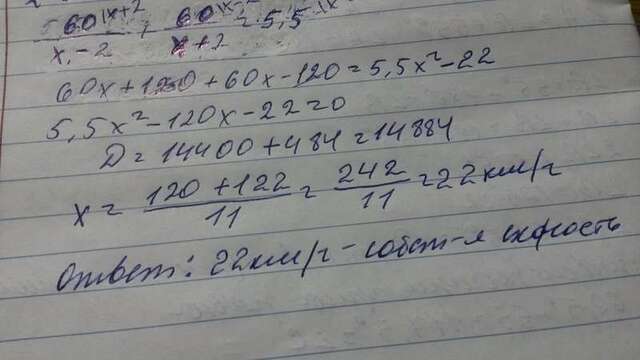 60|x+2 / x-2 + 60|x-2 / x+2 = 5,5
60x+120+60x-120=5,5x²-22
5,5x²-120x-22=0
D=14400+484=14884
x = 120+122 / 11 = 242 / 11 = 22 км/г
Ответ: 22км/г - собст-я скорость